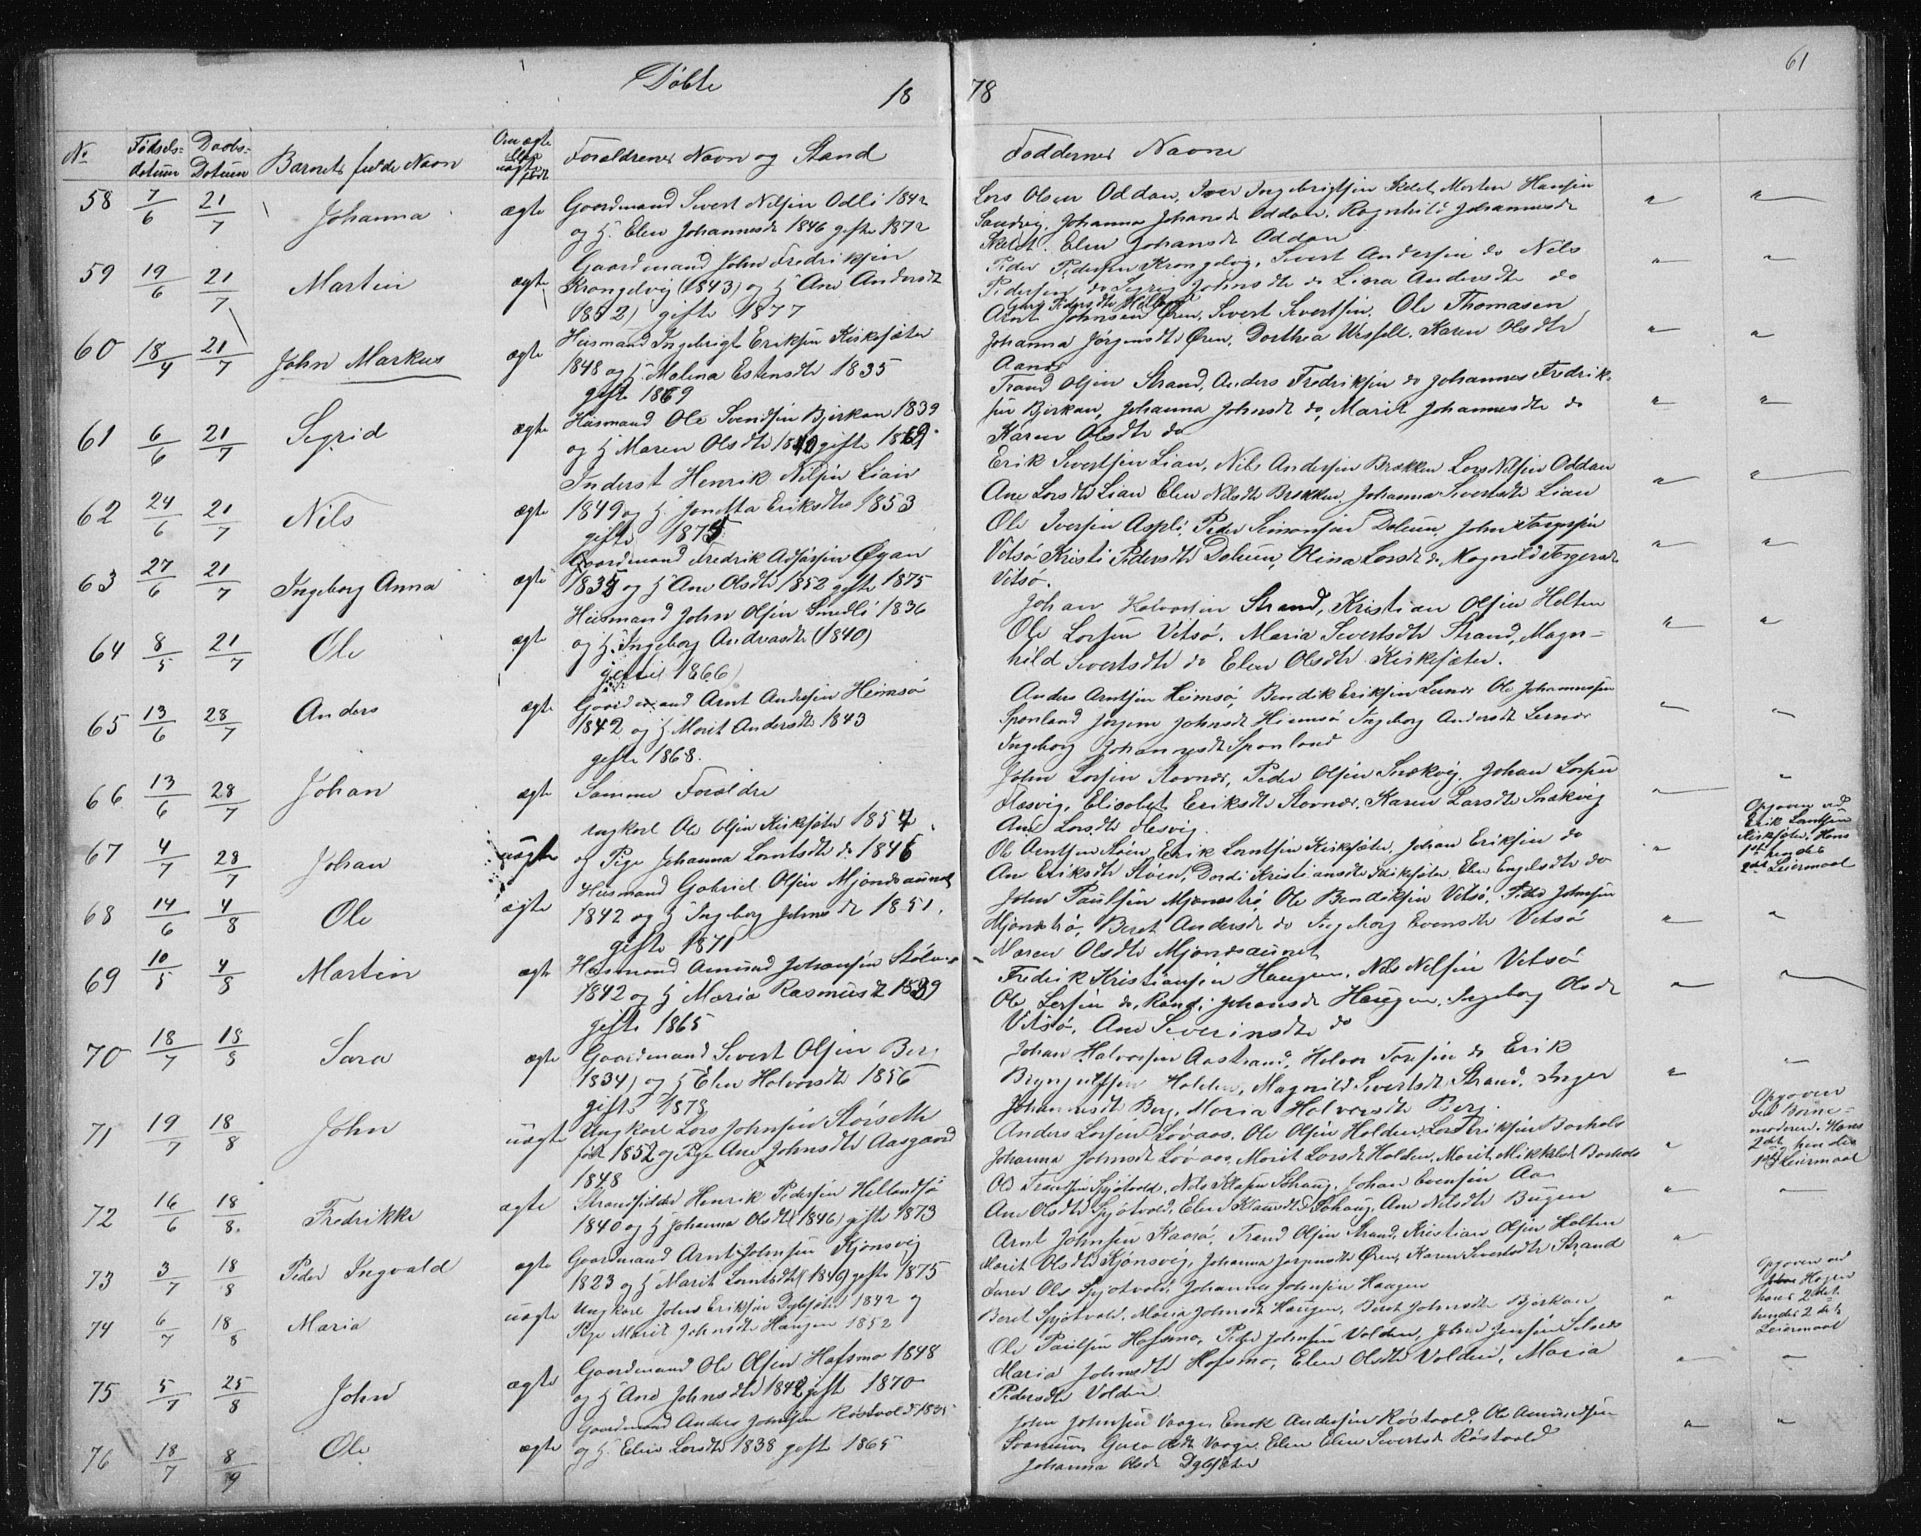 61
Døbte
18 78
No Fødsels= datum Daabs= Datum Barnets fulde Navn Om ægte eller uægte født Forældrenes Navn og Stand Faddernes Navne
58 7/6 21/7 Johanna ægte Gaardmand Sivert Nilsen Odli 1842
og H. Elen Johannesdt 1846 gifte 1872
Lars Olsen Oddan, Iver Ingebrigtsen Skelet, Morten Hansen
Sandvig, Johanna Johansdt Oddan, Ragnhild Johannesdt
Skelet, Elen Johansdt Oddan
59 19/6 21/7 Martin ægte Gaardmand John Fredriksen
Krongelvig (1843) og H Ane Andersdt
1852) gifte 1877
Peder Pedersen Krongelvig, Sivert Andersen do Nils
Pedersen do Sigrid Johnsdt do Lina Andersdt do
60 18/4 21/7 John Markus ægte Husmand Ingebrigt Eriksen Kiskesæter
1848 og H. Malena Estensdt 1835
gifte 1869
Arnt Johnsen Øren, Sivert Sivertsen, Ole Thomasen
Johanna Jørgensdt Øren, Dorthea Wessell, Karen Olsdt
Aanes
61 6/6 21/7 Sigrid ægte Husmand Ole Svendsen Bjerkan 1839
og H Maren Olsdt 1840 gifte 1869
Trond Olsen Strand, Anders Fredriksen do Johannes Fredrik-
sen Bjerkan, Johanna Johnsdt do, Marit Johannesdt do
Karen Olsdt do
62 24/6 21/7 Nils ægte Inderst Henrik Nilsen Liain
1849 og H. Jonetta Eriksdt 1853
gifte 1875
Erik Sivertsen Lian, Nils Andersen Brækken Lars Nilsen Oddan
Ane Larsdt Lian Elen Nilsdt Brækken, Johanna Sivertsdt Lian
63 27/6 21/7 Ingeborg Anna ægte Gaardmand Fredrik Øyan
1835 og H Ane Olsdt 1852 gifte 1875
Ole Iversen Aspli, Peder Simonsen Dalum, John Torgersen
Vitsø Kristi Pedersdt Dalum, Olina Larsdt do Magnild Torgersdt
Vitsø.
64 8/5 21/7 Ole ægte Husmand John Olsen Smedli 1836
og H. Ingeborg Andreasdt (1840)
gifte 1866)
Johan Halvorsen Strand, Kristian Olsen Holten
Ole Larsen Vitsø. Maria Sivertsdt Strand, Magn-
hild Sivertsdt do Elen Olsdt Kiskesæter.
65 13/6 28/7 Anders ægte Gaardmand Arnt Andersen Heimsø
1842 og H Marit Andersdt 1843
gifte 1868.
Anders Arntsen Heimsø, Bendik Eriksen Lernæs Ole Johannesen
Spanland Jørgine Johnsdt Heimsø Ingeborg Andersdt Lernæs
Ingeborg Johannesdt Spanland
66 13/6 28/7 Johan ægte Samme Forældre
John Larsen Stavnæs, Peder Olsen Snækvig, Johan Larsen
Elisabet Eriksdt Stavnæs, Karen Larsdt Snækvig
Ane Larsdt
67 4/7 28/7 Johan uægte Ungkarl Ole Olsen Kiskesæter 1857
og Pige Johanna Larntsdt do 1846
Ole Arntsen Støen Erik Larntsen Kiskesæter, Johan Eriksen do
Ane Eriksdt Støen, Dordi Kristiansdt Kiskesæter, Elen Engelsdt do
Opgiven ved
Erik Larntsen
Kiskesæter. Hans
1ste hendes
2det Leiermaal
68 14/6 4/8 Ole ægte Husmand Gabriel Olsen Mjøndsaunet
1842 og H Ingeborg Johnsdt 1851.
gifte 1871
John Paulsen Ole Bendiksen Vitsø, Peder Johnsen
Beret Andersdt do Ingeborg Evensdt Vitsø
Maren Olsdt Mjøndsaunet
69 10/5 4/8 Martin ægte Husmand Amund Johansen
1842 og H Maria Rasmusdt 1839
gifte 1865
Fredrik Kristiansen Haugen, Nils Nilsen Vitsø
Ole Larsen do, Johansdt Haugen, Ingeborg Olsdt
Vitsø, Ane Severinsdt do
70 18/7 18/8 Sara ægte Gaardmand Sivert Olsen Berg
1834) og H Elen Halvorsdt 1856
gifte 1878
Johan Halvorsen Aastrand, Halvor Toresen do Erik
Brynjulfsen Holden, Magnild Sivertsdt Strand, Inger
Johannesdt Berg, Maria Halvorsdt Berg.
71 19/7 18/8 John uægte Ungkarl Lars Johnsen Størseth
født 1852 og Pige Ane Johnsdt Aasgaard
1848
Anders Larsen Løvaas, Ole Olsen Holden, Lars Eriksen
Johanna Johnsdt Løvaas, Marit Larsdt Holden, Marit Mikkelsdt
Opgiven
ved Barne-
moderen. Hans
2det, hendes
1ste Leiermaal
72 16/6 18/8. Fredrikke ægte Strandsidder Henrik Pedersen Hellandsjø
1840 og H Johanna Olsdt (1846) gifte 1873
Ole Trondsen Spjøtvold, Nils Johan Evensen Aa
Ane Olsdt Spjøtvold, Elen Ane Nilsdt Bugen
73 3/7 18/8 Peder Ingvald ægte Gaardmand Arnt Johnsen Kjønsvig
1823 og H Marit Larntsdt (1849) gifte 1875
Arnt Johnsen Trond Olsen Strand, Kristian Olsen Holten
Marit Olsdt Kjønsvig, Johanna Jørgensdt Øren, Karen Sivertsdt Strand
74 6/7 18/8 Maria uægte Ungkarl Johan Eriksen 1842 og
Pige Marit Johnsdt Haugen 1852
Ole Spjøtvold, Johannes Johnsen Haugen
Beret Spjøtvold, Maria Johnsdt Haugen, Beret Johnsdt Bjerkan
Opgiven ved
Haugen
hans 2det
hendes 2det
Leiermaal
75 5/7 25/8 John ægte Gaardmand Ole Olsen Hafsmo 1848
og H Ane Johnsdt 1842 gift 1870
Ole Paulsen Hafsmo, Peder Johnsen Volden, John Jensen
Maria Johnsdt Hafsmo, Elen Olsdt Volden, Maria
Pedersdt Volden
76 18/7 8/9 Ole ægte Gaardmand Anders Johnsen Røstvold 1835
og H. Elen Larsdt 1838 gifte 1865
John Johnsen Vaagen Enok Andersen Røstvold, Ole Amundsen
Olsdt Vaagen, Elen Sivertsdt Røstvold
Johanna Olsdt